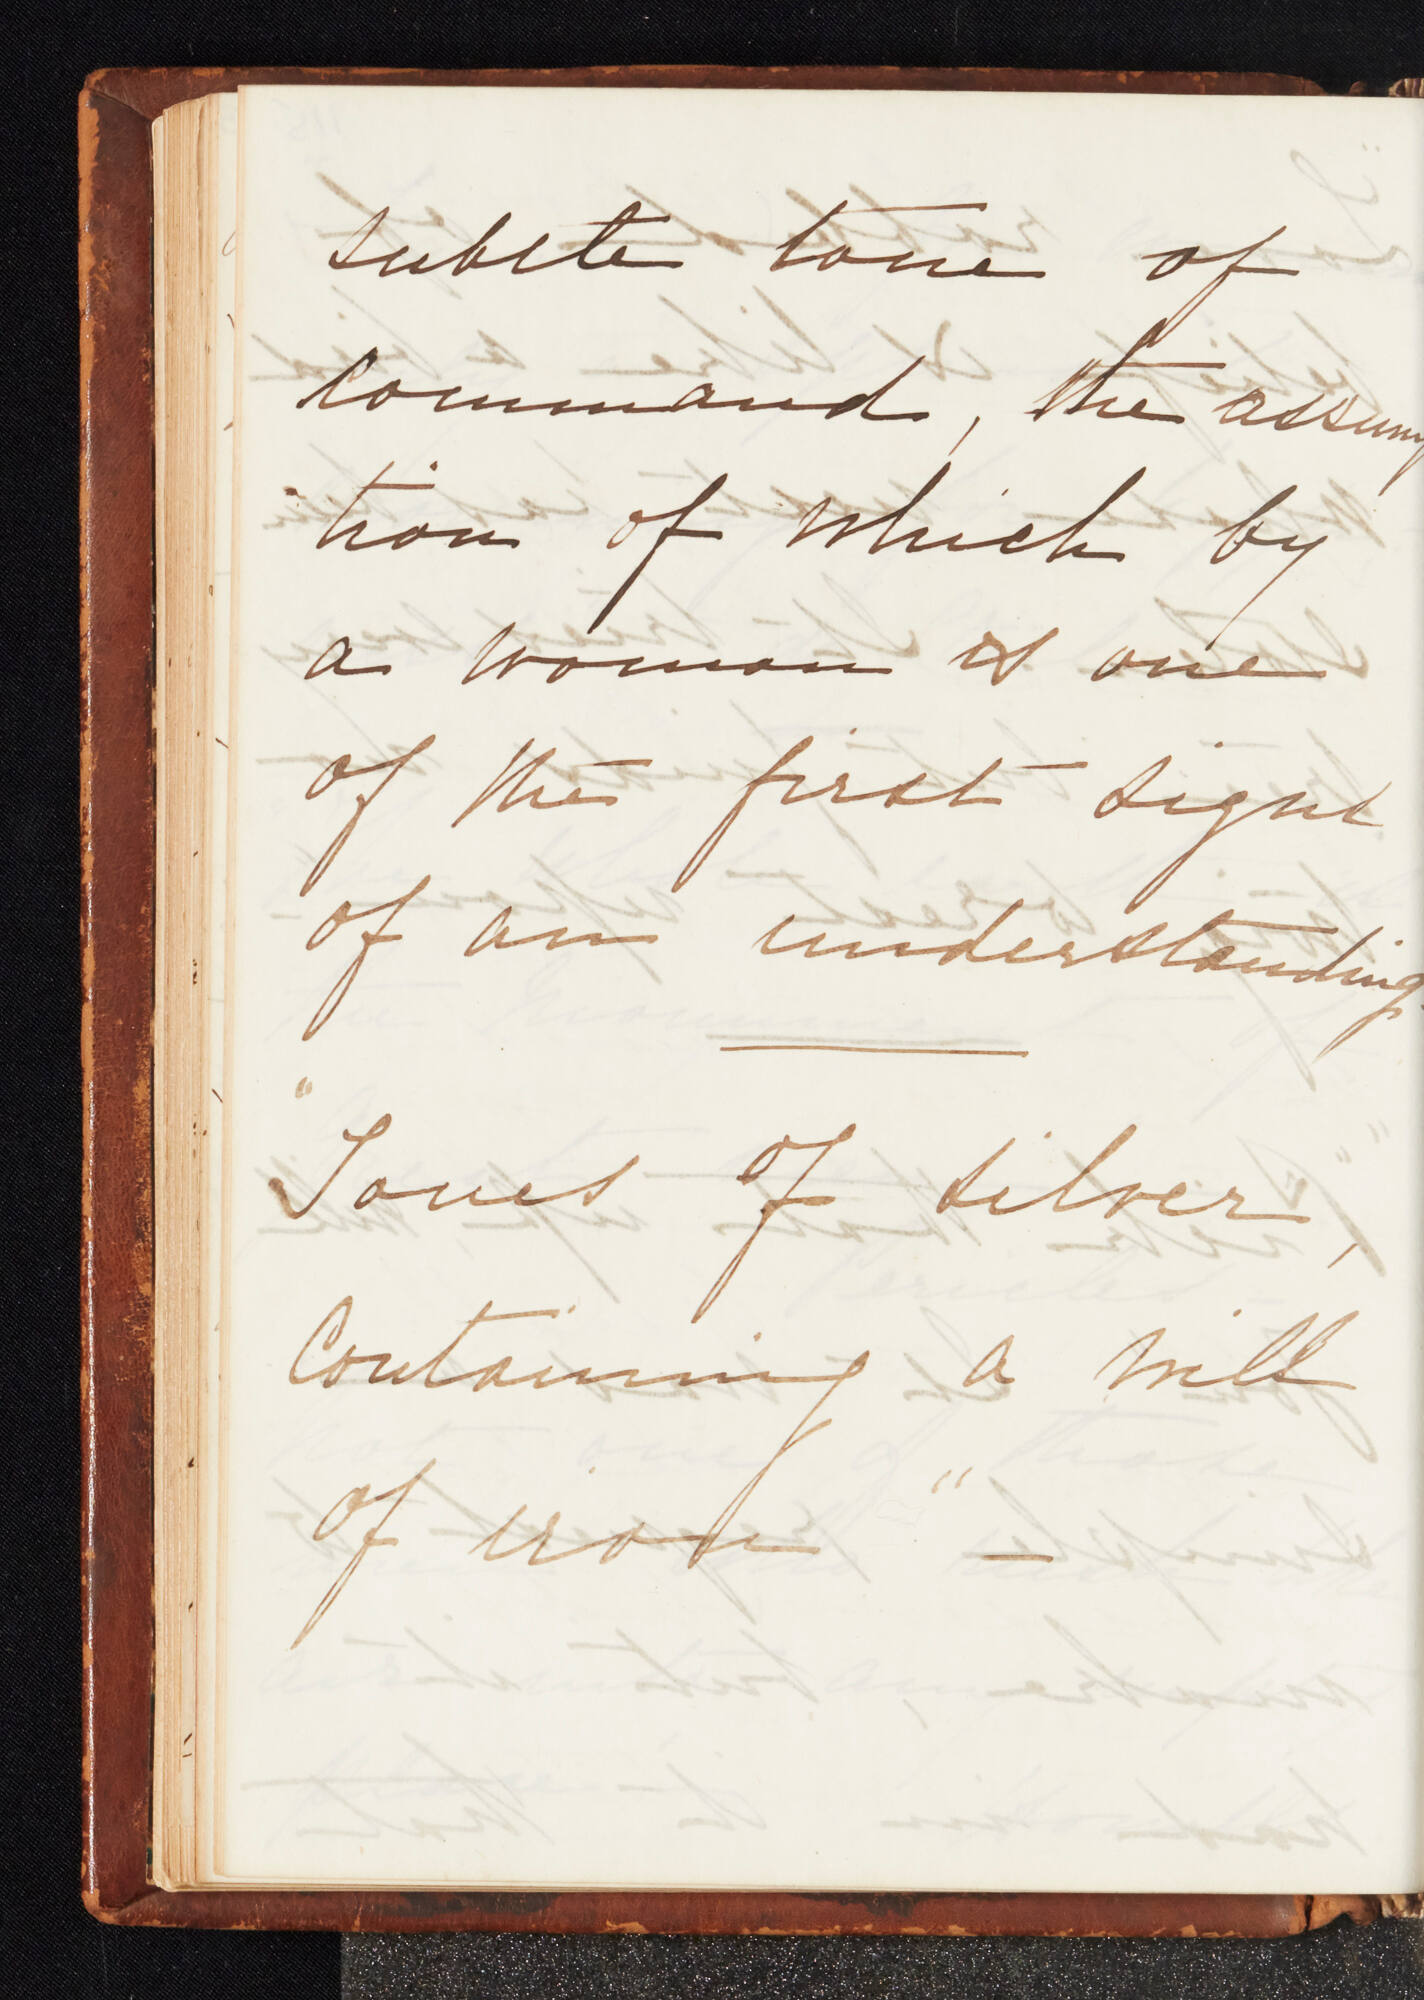 subtle tone of
command, the assump
tion of which by
a woman is one
of the first signs
of an understanding.
"Tones of silver,
Containing a will
of iron" –